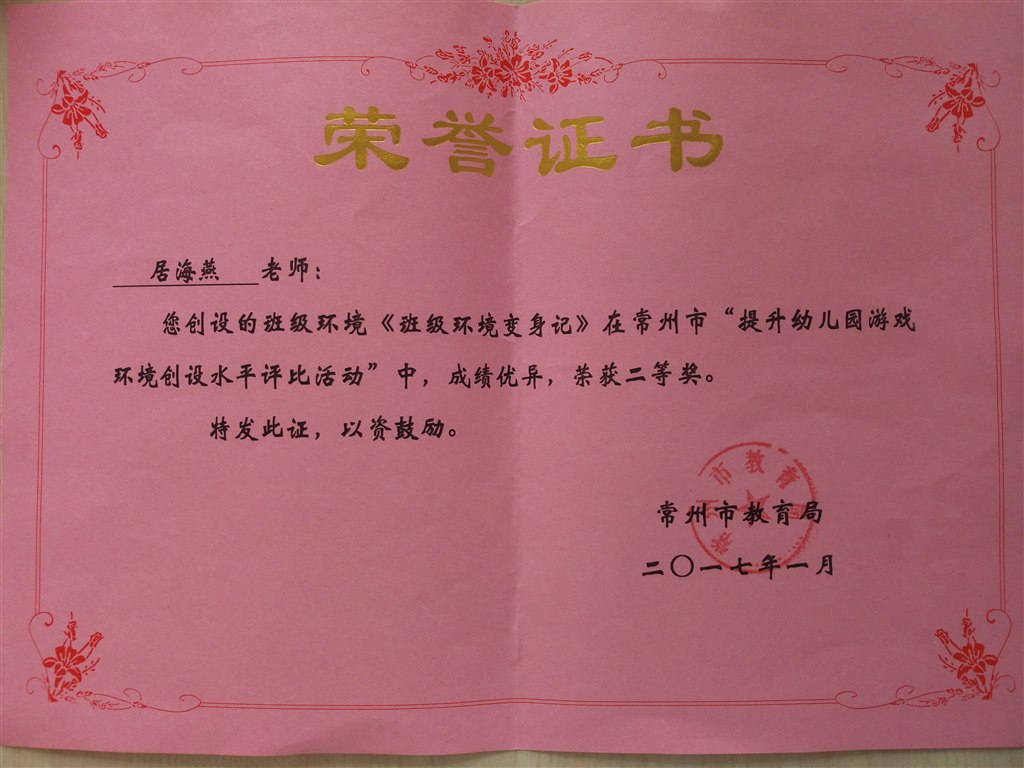 荣誉证书
居海燕 老师：
您创设的班级环境《班级环境变身记》在常州市“提升幼儿园游戏
环境创设水平评比活动”中，成绩优异，荣获二等奖。
特发此证，以资鼓励。
市教育
常州市教育局
二〇一七年一月